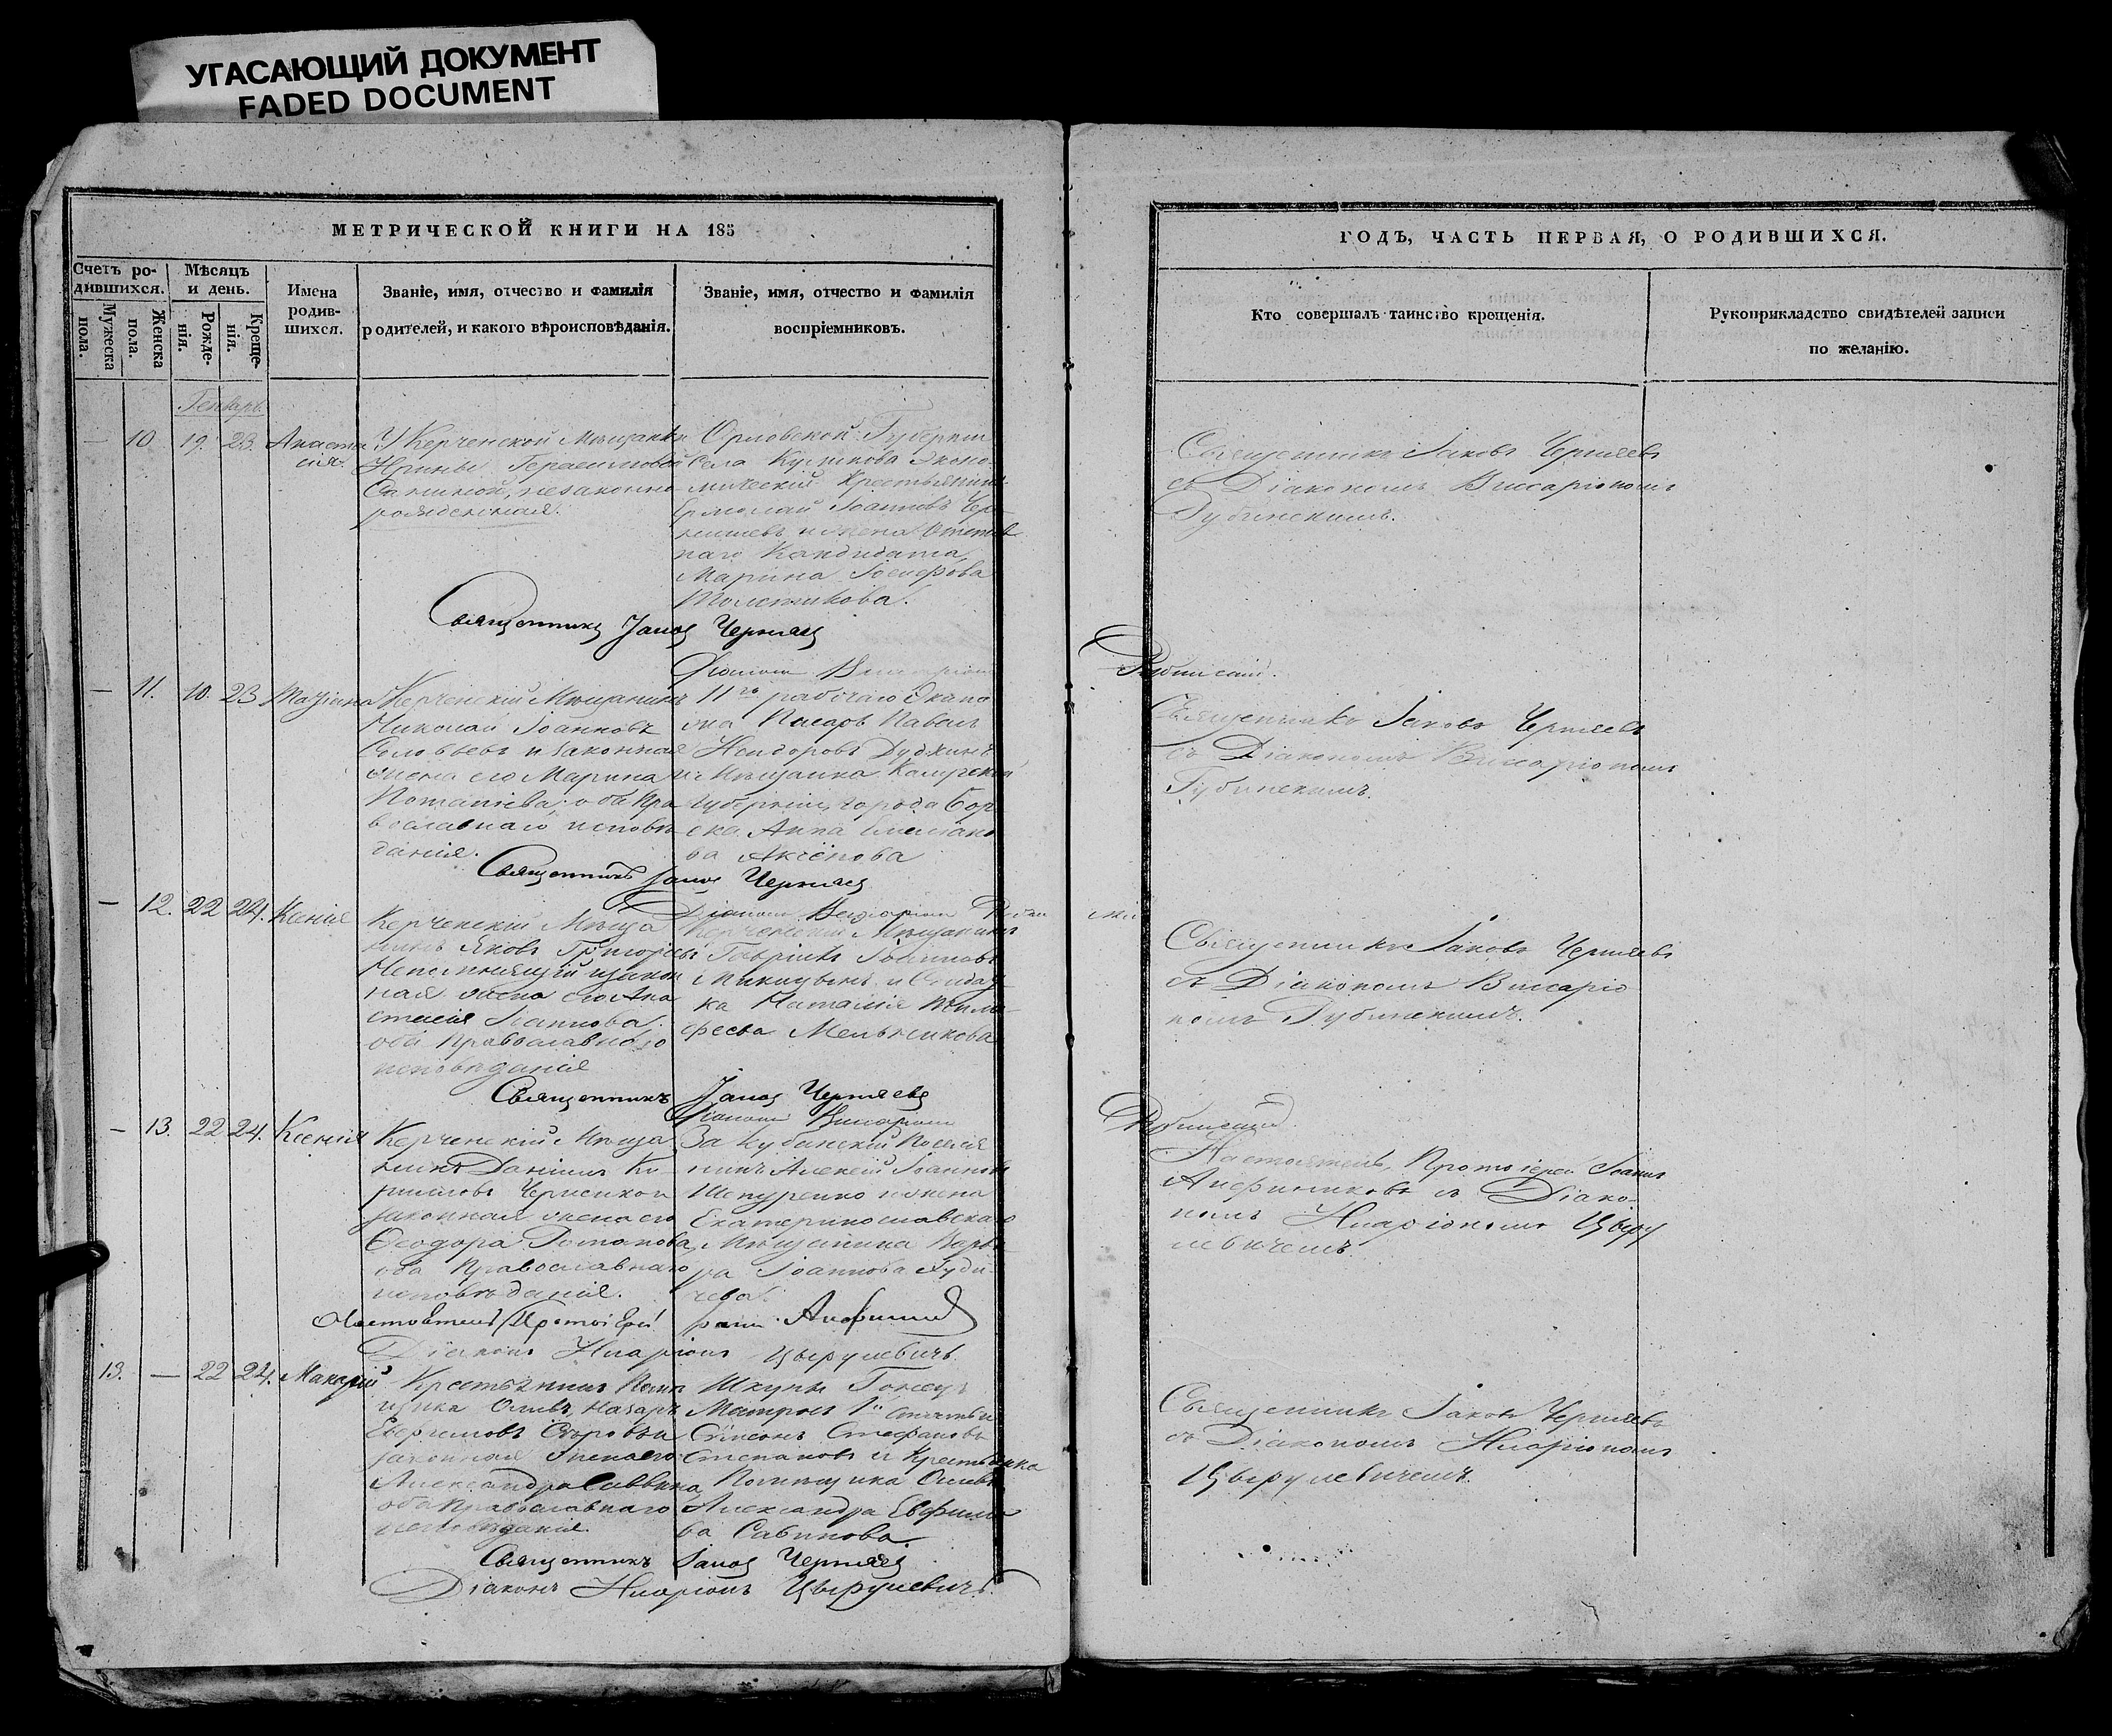 УГАСАЮЩИЙ ДОКУМЕНТ
FADED DOCUMENT
МЕТРИЧЕСКОЙ КНИГИ НА 185
Счетъ ро-
дившихся.
Мужеска
пола.
Женска
пола.
Мѣсяцъ
и день.
Рожде-
нія.
Креще-
нія.
Имена
родив-
шихся.
Званіе, имя, отчество и фамилія
родителей, и какого вѣроисповѣданія.
Званіе, имя, отчество и фамилія
воспріемниковъ.
Генварь
— 10. 19. 23. Анаста
сія.
У Керченской Мѣщанки
Ирины Герасимовой
незаконно
рожденная.
Орловской Губерніи
Села Куликова Эконо-
мическій Крестьянинъ
Ермолай Іоанновъ Чер-
нышевъ и жена
наго Кандидата
Марина Іосифова
Толстикова.
Священникъ Іаковъ Черняевъ
Діаконъ Виссаріонъ
— 11. 10. 23 Татіана
Керченскій Мѣщанинъ
Николай Іоанновъ
Соловьевъ и законная
жена его Марина
Потапіева, оба Пра
вославнаго исповѣ
данія.
11го рабочаго Экипа
жа Писарь Павелъ
и Мѣщанка Калужской
Губерніи, города Бор
ска Анна Емеліано
ва Аксёнова
Священникъ Іаковъ Черняевъ
Діаконъ Виссаріонъ
— 12. 22 24. Ксенія
Керченскій Мѣща
нинъ Яковъ Григорьевъ
и закон
ная жена его Ана
стасія Іоаннова.
оба Православнаго
исповѣданія
Керченскій Мѣщанинъ
Гавріилъ Іоанновъ
и Солдат
ка Наталія
феева Мельникова
Священникъ Іаковъ Черняевъ
Діаконъ Виссаріонъ
— 13. 22 24. Ксенія
Керченскій Мѣща
нинъ Даніилъ Ки-
рилловъ
законная жена его
Ѳеодора Романова,
оба Православнаго
исповѣданія.
Закубанскій Поселя
нинъ Алексѣй Іоанновъ
Шепуренко и жена
Екатеринославскаго
Мѣщанина Варва-
ра Іоаннова
чева.
Настоятель Протоіерей Іоаннъ
Діаконъ Иларіонъ Цырулевичъ
13. — 22 24. Макарій
Крестьянинъ Помѣ
щика Олива, Назаръ
законная жена его
Александра Саввина
оба Православнаго
исповѣданія.
Шкуны Гонецъ
Матросъ 1й статьи
Симеонъ Стефановъ
Степановъ и Крестьянка
Помѣщика Олива
Александра Евфимо
ва Савинова
Священникъ Іаковъ Черняевъ
Діаконъ Иларіонъ Цырулевичъ.
ГОДЪ, ЧАСТЬ ПЕРВАЯ, О РОДИВШИХСЯ.
Кто совершалъ таинство крещенія.
Рукоприкладство свидѣтелей записи
по желанію.
Священникъ Іаковъ Черняевъ
съ Діакономъ Виссаріономъ
Рубинскимъ.
Рубинскій.
Священникъ Іаковъ Черняевъ
съ Діакономъ Виссаріономъ
Рубинскимъ.
Священникъ Іаковъ Черняевъ
съ Діакономъ Виссаріо
номъ Рубинскимъ.
Рубинскій.
Настоятель, Протоіерей Іоаннъ
съ Діако-
номъ Иларіономъ Цыру
левичемъ.
Священникъ Іаковъ Черняевъ
съ Діакономъ Иларіономъ
Цырулевичемъ.